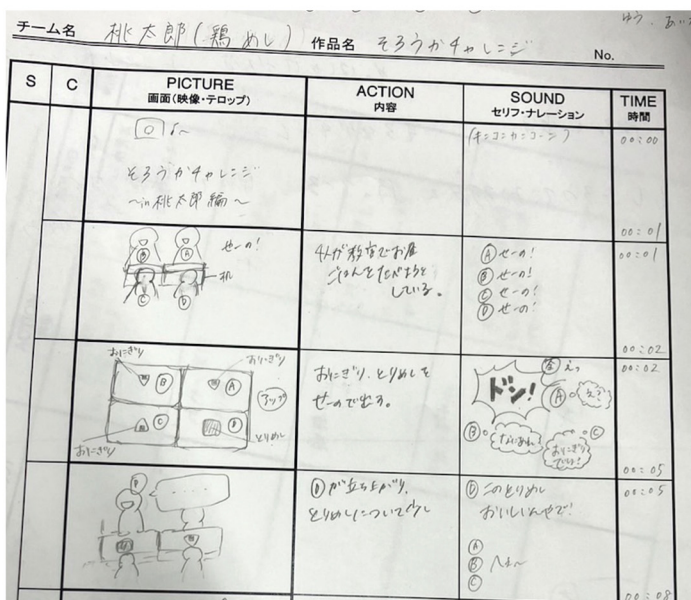 チーム名 桃太郎(鶏めし) 作品名 そろうかチャレンジ No.
S C PICTURE 画面(映像・テロップ) ACTION 内容 SOUND セリフ・ナレーション TIME 時間
(キンコンカンコーン) 00:00
そろうかチャレンジ
～in桃太郎編～
00:01
せーの!
B A
机
C D
4人が教室でお昼
ごはんをたべようと
している。
A せーの!
B せーの!
C せーの!
D せーの!
00:01
00:02
おにぎり おにぎり
B A
C D
アップ
おにぎり とりめし
おにぎり、とりめしを
せーので出す。
ドン!
えっ
A え?
B なにあれ?
C おにぎり
でしょ!
00:02
00:05
D
Dが立ち上がり、
とりめしについて少し
D このとりめし
おいしいんやで!
A
B へぇ～
C
00:05
00:08